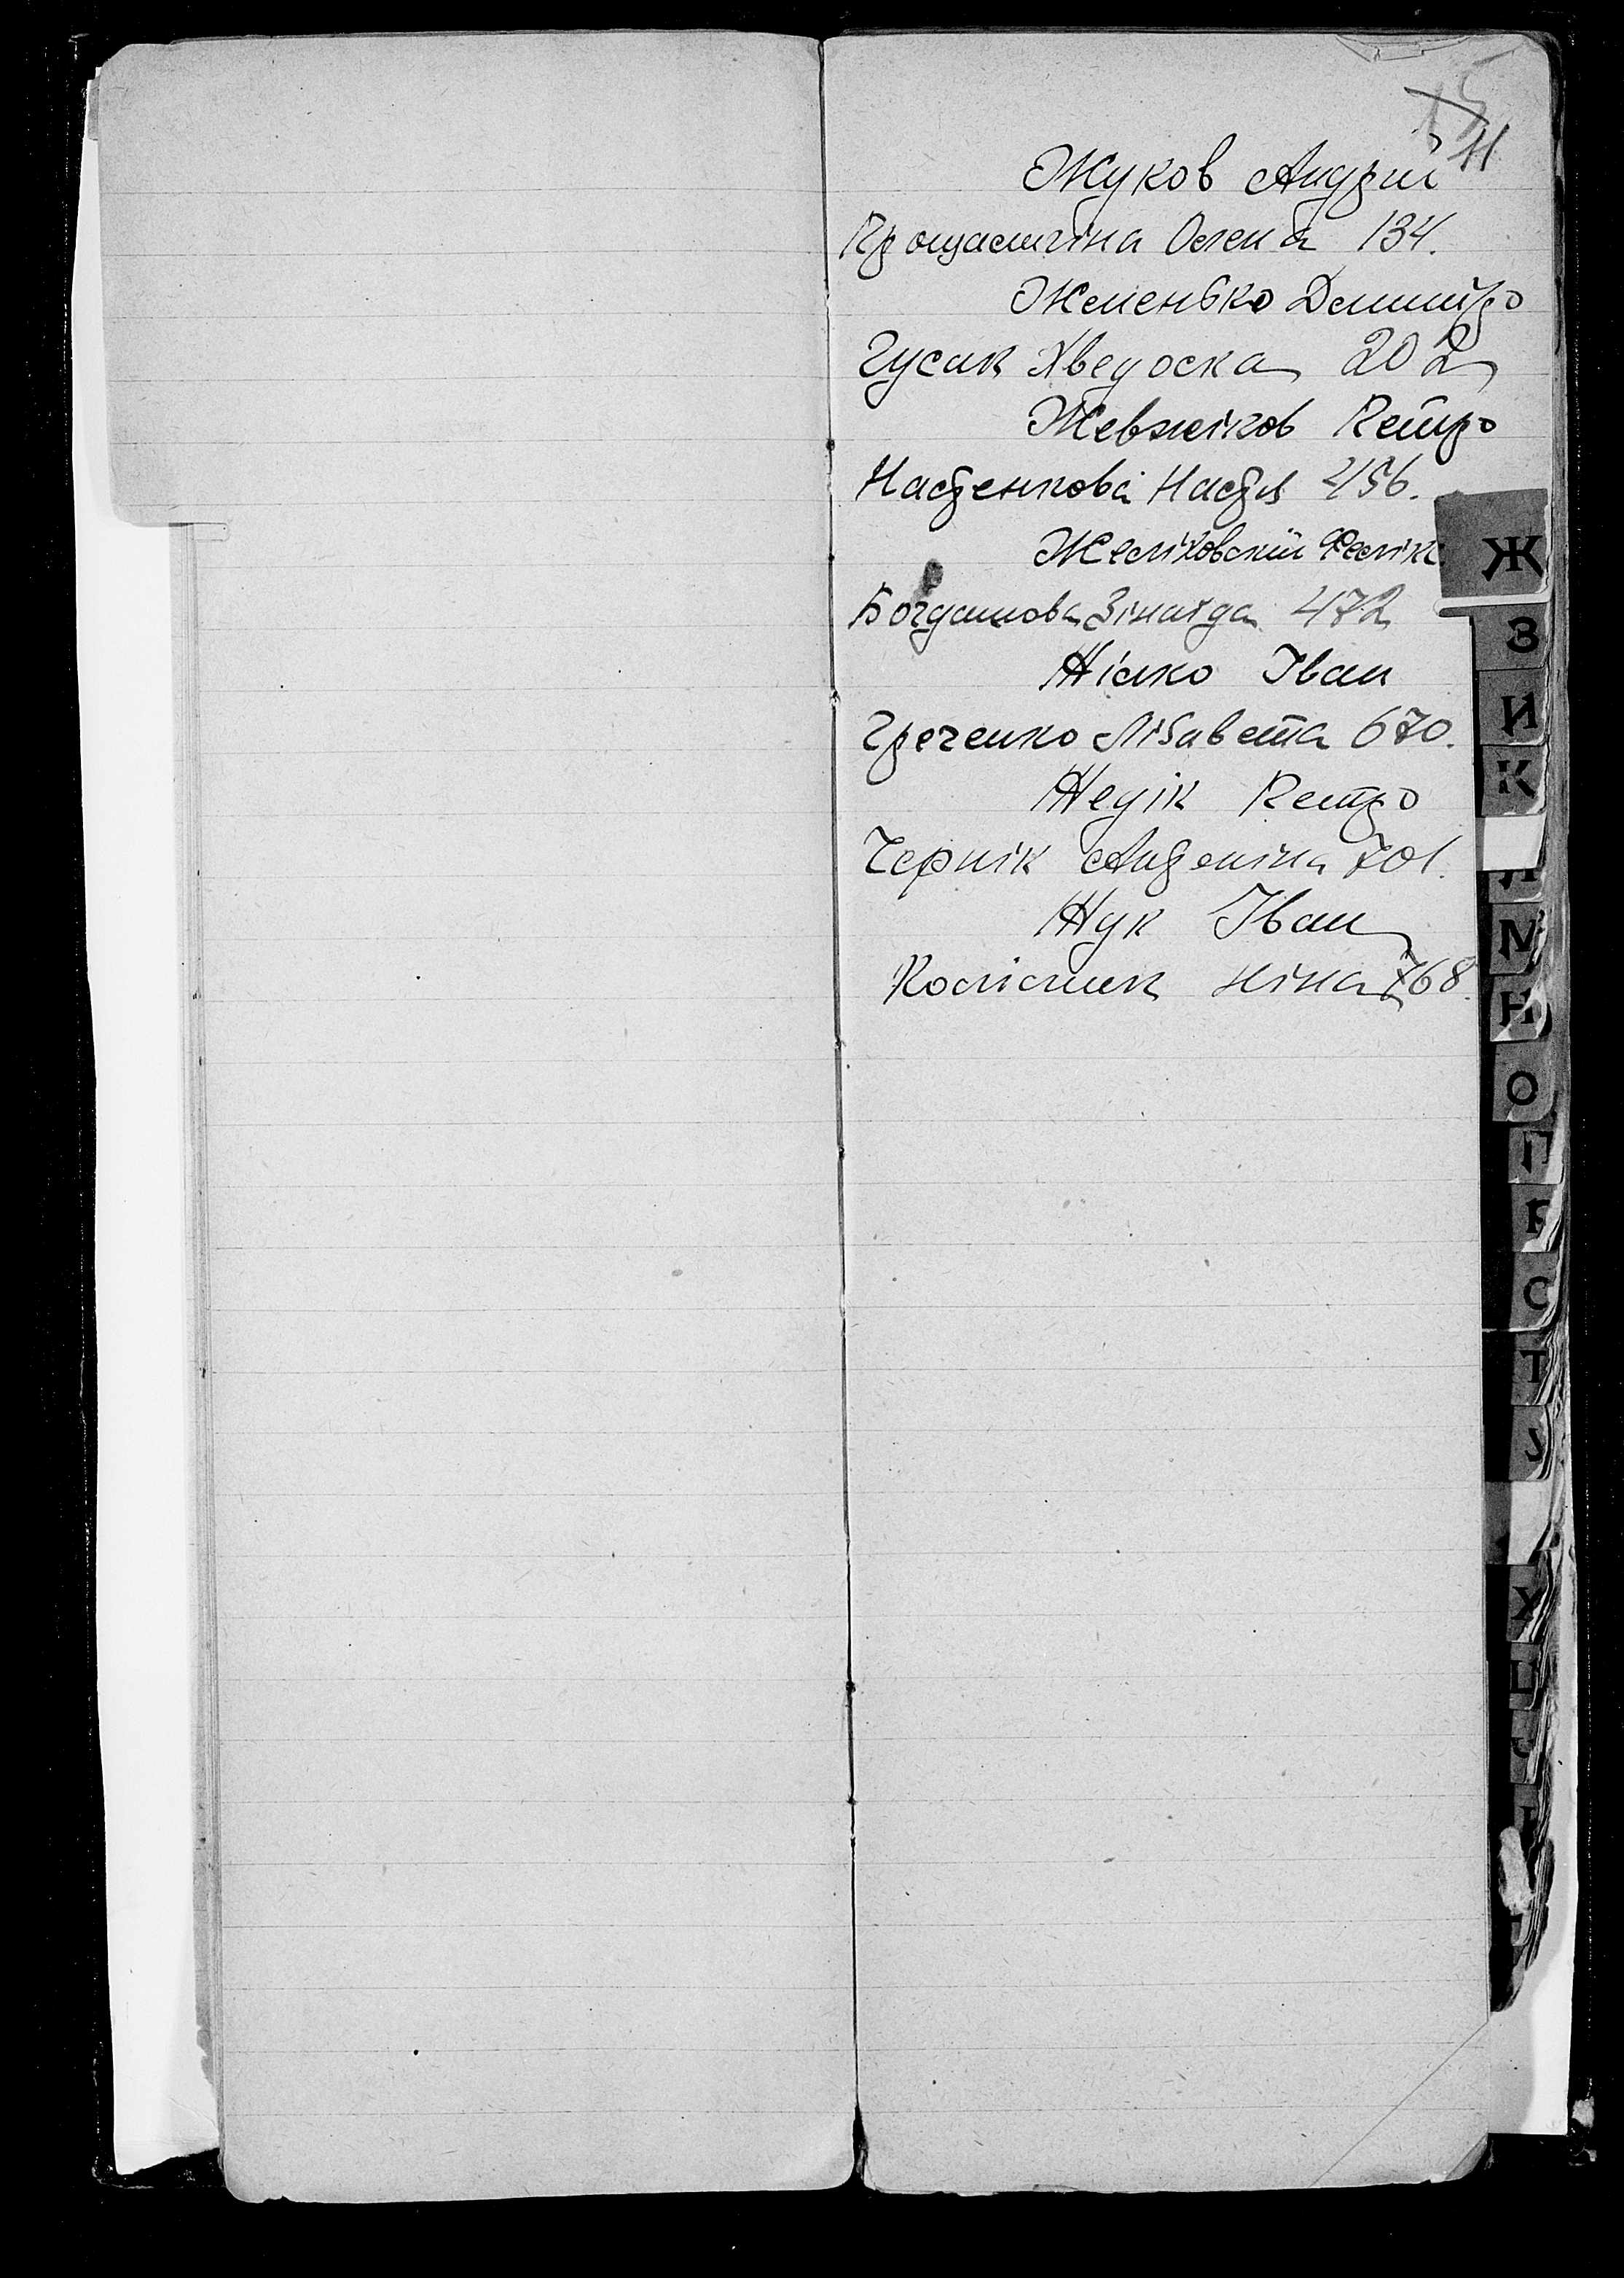 15
11
Жуков Андрій
Прощастіна Олена 134.
Жменько Дмитро
Гусак Хведоска 202
Жевжиков Петро
Настенкова Настя 456.
Желіховский Фелікс
Богданова Зінаїда 472
Жіако Іван
Гречено Лізавета 670.
Жедік Петро
Чернік Ангеліна 701.
Жук Іван
Колісник ніна 768.
Ж
З
И
К
Л
М
Н
О
П
Р
С
Т
У
Х
Ц